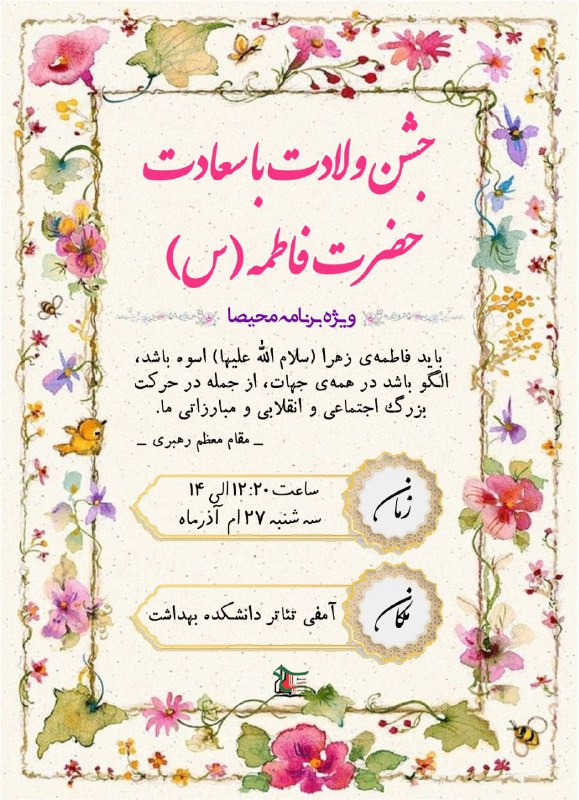 جشن ولادت با سعادت
حضرت فاطمه (س)
ویژه برنامه محیصا
باید فاطمه‌ی زهرا (سلام الله علیها) اسوه باشد،
الگو باشد در همه‌ی جهات، از جمله در حرکت
بزرگ اجتماعی و انقلابی و مبارزاتی ما.
_ مقام معظم رهبری _
زمان
ساعت ۱۲:۲۰ الی ۱۴
سه شنبه ۲۷ ام آذرماه
مکان
آمفی تئاتر دانشکده بهداشت